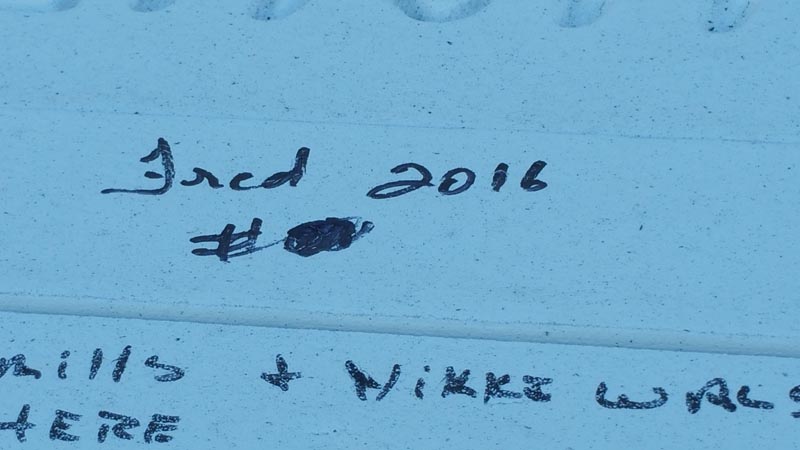 Fred 2016
#
mills + Nikki WAS
HERE